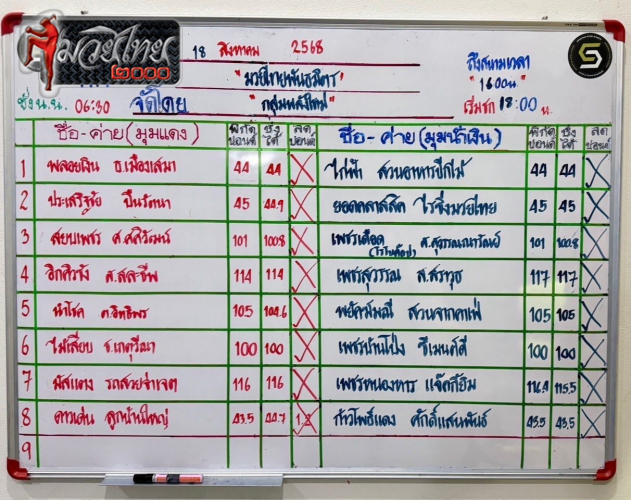 มวยไทย
๒๐๐๐
18 สิงหาคม 2568
"มวยไทยพันธมิตร"
ถึงสนามเวลา
"16.00 น."
ชั่ง น.น. 06:30 จัดโดย "กลุ่มพลังใหม่" เริ่มชก 18:00 น.
ชื่อ-ค่าย (มุมแดง) พิกัด ปอนด์ ชั่งได้ ลด ปอนด์ ชื่อ-ค่าย (มุมน้ำเงิน) พิกัด ปอนด์ ชั่งได้ ลด ปอนด์
1 พลอยเงิน ธ.เมืองเสมา 44 44 X ไก่ฟ้า สวนอาหารปีกไม้ 44 44 X
2 ประเสริฐชัย ปิ่นรัตนา 45 44.9 X ยอดคลาสสิค ไร่ซิ่งมวยไทย 45 45 X
3 สยบเพชร ศ.ศศิวัฒน์ 101 100.8 X เพชรเดือด 101 100.8 X
4 114 114 X เพชรสุวรรณ ส.สราวุธ 117 117 X
5 นำโชค 105 104.6 X พยัคฆ์มณี สวนจากคาเฟ่ 105 105 X
6 ไม้เสียบ 100 100 X เพชรบ้านโป่ง ซีเมนต์ดี 100 100 X
7 มัสแตง รถสวยจ่าเจต 116 116 X เพชรหนองหาร แจ๊คกี้ยิม 116.4 115.5 X
8 ดาวเด่น ลูกบ้านใหญ่ 43.5 44.7 1.2 ก้าวโพธิ์แดง ศักดิ์แสนพันธ์ 43.5 43.5 X
9